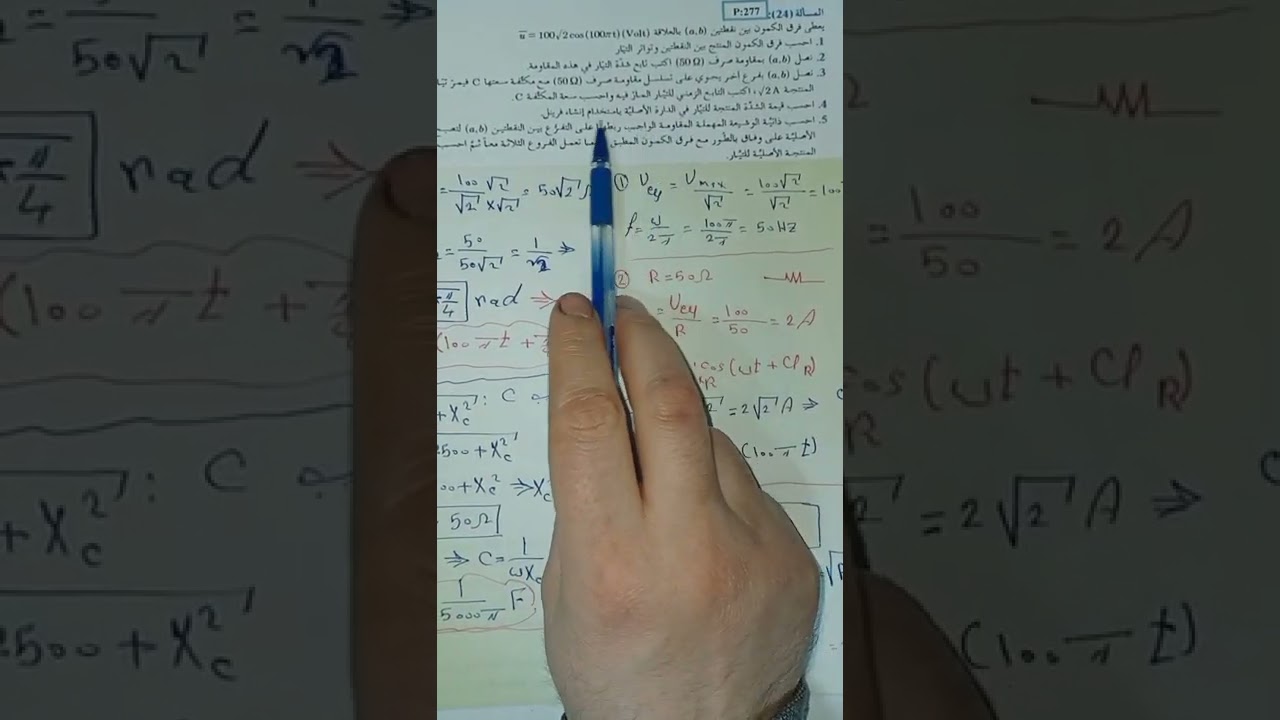 المسألة (24):
P:277
يعطى فرق الكمون بين نقطتين (a,b) بالعلاقة u = 100√2 cos(100πt) (Volt)
1. احسب فرق الكمون المنتج بين النقطتين وتواتر التيار
2. نصل (a,b) بمقاومة صرف (50 Ω) اكتب تابع شدة التيار في هذه المقاومة.
3. نصل (a,b) بفرع آخر يحوي على تسلسل مقاومة صرف (50 Ω) مع مكثفة سعتها C فيمر
المنتجة √2 A، اكتب التابع الزمني للتيار المار فيه واحسب سعة المكثفة C.
4. احسب قيمة الشدة المنتجة للتيار في الدارة الأصلية باستخدام إنشاء فرينل.
5. احسب ذاتية الوشيعة المهملة المقاومة الواجب ربطها على التفرع بين النقطتين (a,b) لتصبح
الأصلية على وفاق بالطور مع فرق الكمون المطبق تعمل الفروع الثلاثة معاً ثم احسب
المنتجة الأصلية للتيار.
① Ueff = Umax/√2 = 100√2/√2 = 100
f = ω/2π = 100π/2π = 50 HZ
② R = 50 Ω
= Ueff/R = 100/50 = 2 A
cos(ωt + φR)
= 2√2 A ⇒
(100πt)
= 100 √2/√2 × √2 = 50√2 Ω
= 50/50√2 = 1/√2 ⇒
π/4 rad ⇒
(100πt +
+ Xc² : C
2500 + Xc²
+ Xc² ⇒ Xc
50 Ω
⇒ C = 1/ωXc
1/5000π F